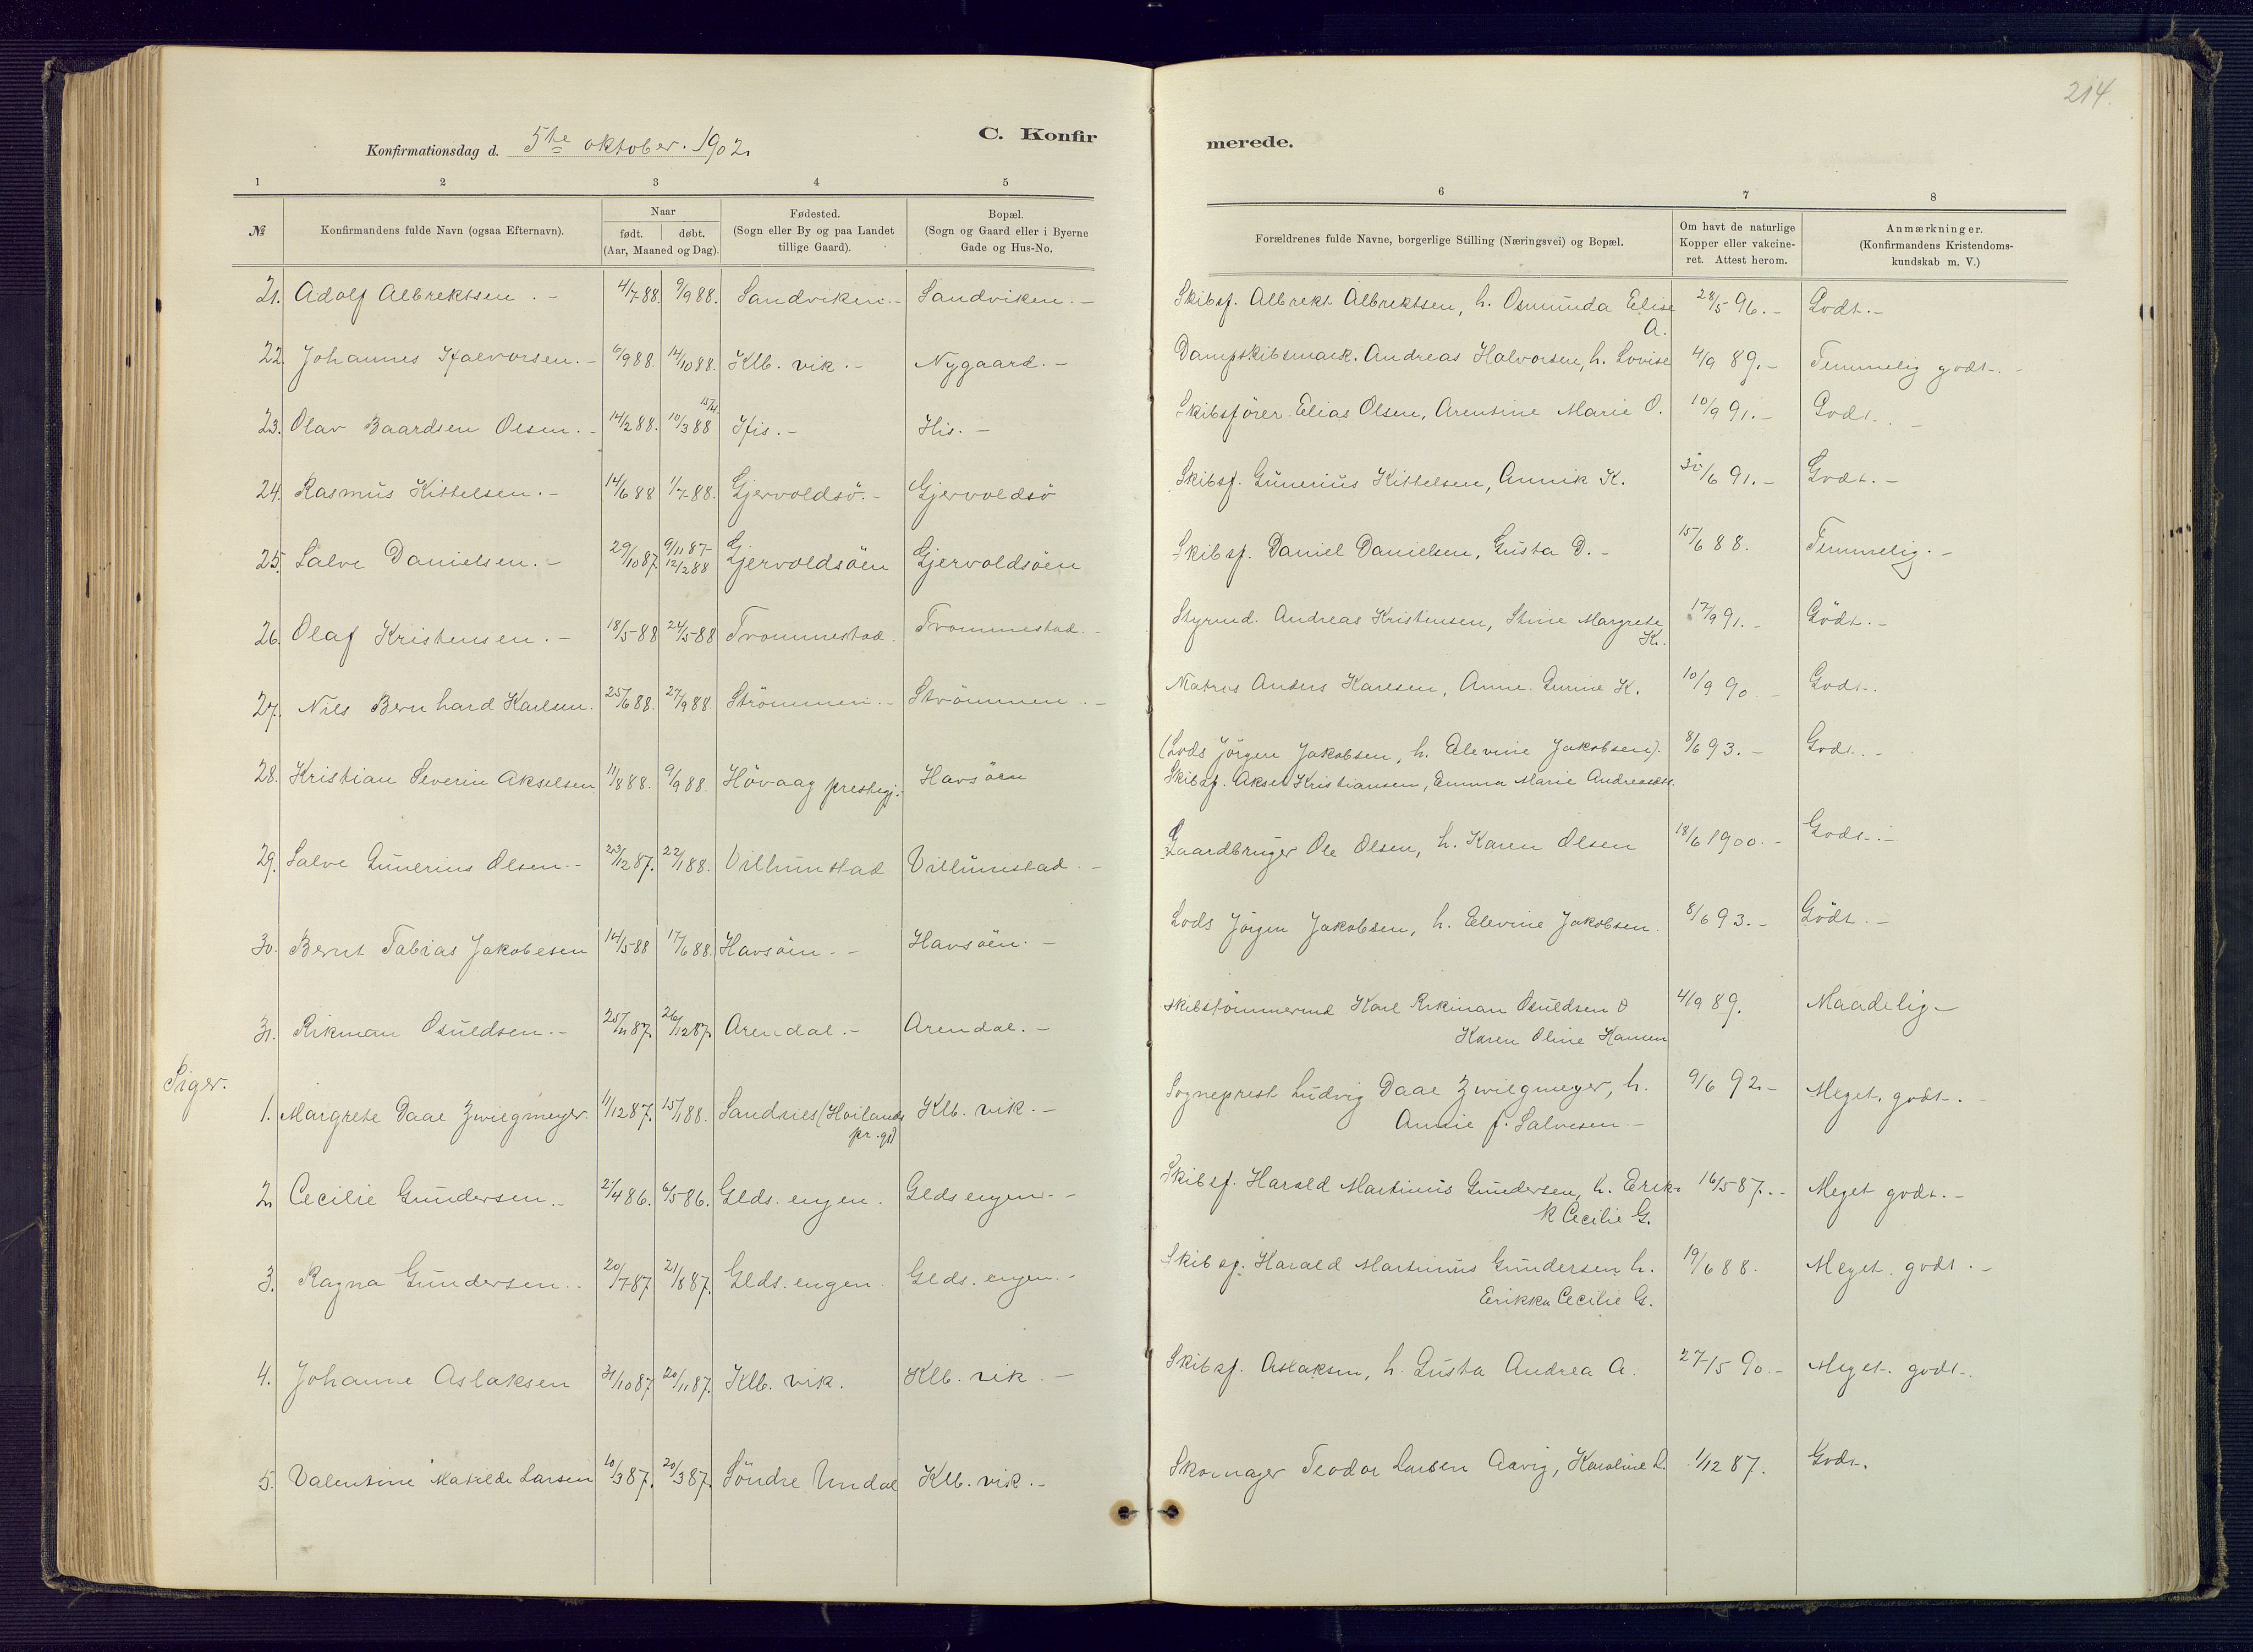 214.
C. Konfirmerede.
Konfirmationsdag d. 5te oktober. 1902.
1 2 3 4 5 6 7 8
№ Konfirmandens fulde Navn (ogsaa Efternavn). Naar født. døbt. (Aar, Maaned og Dag). Fødested. (Sogn eller By og paa Landet tillige Gaard). Bopæl. (Sogn og Gaard eller i Byerne Gade og Hus-No. Forældrenes fulde Navne, borgerlige Stilling (Næringsvei) og Bopæl. Om havt de naturlige Kopper eller vakcineret. Attest herom. Anmærkninger. (Konfirmandens Kristendomskundskab m. V.)
21. Adolf Albrektsen. - 4/7 88. 9/9 88. Sandviken. - Sandviken. - Skibsf. Albrekt Albrektsen, h. Osmunda Elise A. 28/5 96. - Godt. -
22. Johannes Halvorsen. - 6/9 88. 14/10 88. Klb. vik. - Nygaard. - Dampskibsmask. Andreas Halvorsen, h. Lovise 4/9 89. - Temmelig godt. -
23. Olav Baardsen Olsen. - 14/2 88. 10/3 88 15/4 His. - His. - Skibsfører. Elias Olsen, Arentine Marie O. 10/9 91. - Godt. -
24. Rasmus Kittelsen. - 14/6 88 1/7 88. Gjervoldsö. - Gjervoldsö Skibsf. Gunerius Kittelsen, Annik K. 30/6 91. - Godt. -
25. Salve Danielsen. - 29/10 87. 9/11 87 - 12/2 88 Gjervoldsöen Gjervoldsöen Skibsf. Daniel Danielsen, Gusta D. - 15/6 88. Temmelig. -
26. Olaf Kristensen. - 18/5 88 24/5 88 Trommestad. Trommestad. - Styrmd. Andreas Kristensen, Stine Margrete K. 17/9 91. - Godt. -
27. Nils Bernhard Karlsen. 25/6 88. 27/9 88. Strömmen. - Strömmen. - Matros Anders Karlsen, Anne Gurine K. 10/9 90. - Godt.
28. Kristian Severin Akselsen 11/8 88. 9/9 88. Hövaag prestegj. Havsöen (Lods Jörgen Jakobsen, h. Elevine Jakobsen). Skibsf. Aksel Kristiansen, Emma Marie Andreasdtr. 8/6 93. - Godt. -
29. Salve Gunerius Olsen. - 23/12 87. 22/1 88. Villumstad Villumstad. - Gaardbruger Ole Olsen, h. Karen Olsen 18/6 1900. - Godt. -
30. Bernt Tabias Jakobesen 14/5 88 17/6 88. Havsöen. - Havsöen. - Lods Jörgen Jakobsen, h. Elevine Jakobsen. 8/6 93. - Godt. -
31. Rikman Osuldsen. - 25/11 87. 26/12 87. Arendal. - Arendal. - Skibstömmermd Karl Rikman Osuldsen O Karen Oline Hansen 4/9 89. Maadelig. -
Piger.
1. Margrete Daae Zwilgmeyer. 11/12 87. 15/1 88. Sandnes (Høilands pr. gj) Klb. vik. - Sogneprest Ludvig Daae Zwilgmeyer, h. Annie f. Salvesen - 9/6 92 - Meget. godt. -
2. Cecilie Gundersen. - 2/4 86. 6/5 86. Glds. engen. Glds engen - Skibsf. Harald Martinius Gundersen, h. Erikk Cecilie G. 16/5 87. - Meget godt. -
3. Ragna Gundersen. - 20/7 87 21/8 87. Glds. engen. Glds. engen. - Skibsf. Harald Martinius Gundersen h. Erikka Cecilie G. 19/6 88. Meget. godt. -
4. Johanne Aslaksen 31/10 87 20/11 87. Klb. vik. Klb. vik. - Skibsf. Aslaksen, h. Gusta Andrea A. 27/5 90. - Meget. godt.
5. Valentine Matilde Larsen 10/3 87. 20/3 87. Söndre Undal Klb. vik. - Skomager Teodor Larsen Aavig, Karoline L. 1/12 87. Godt.